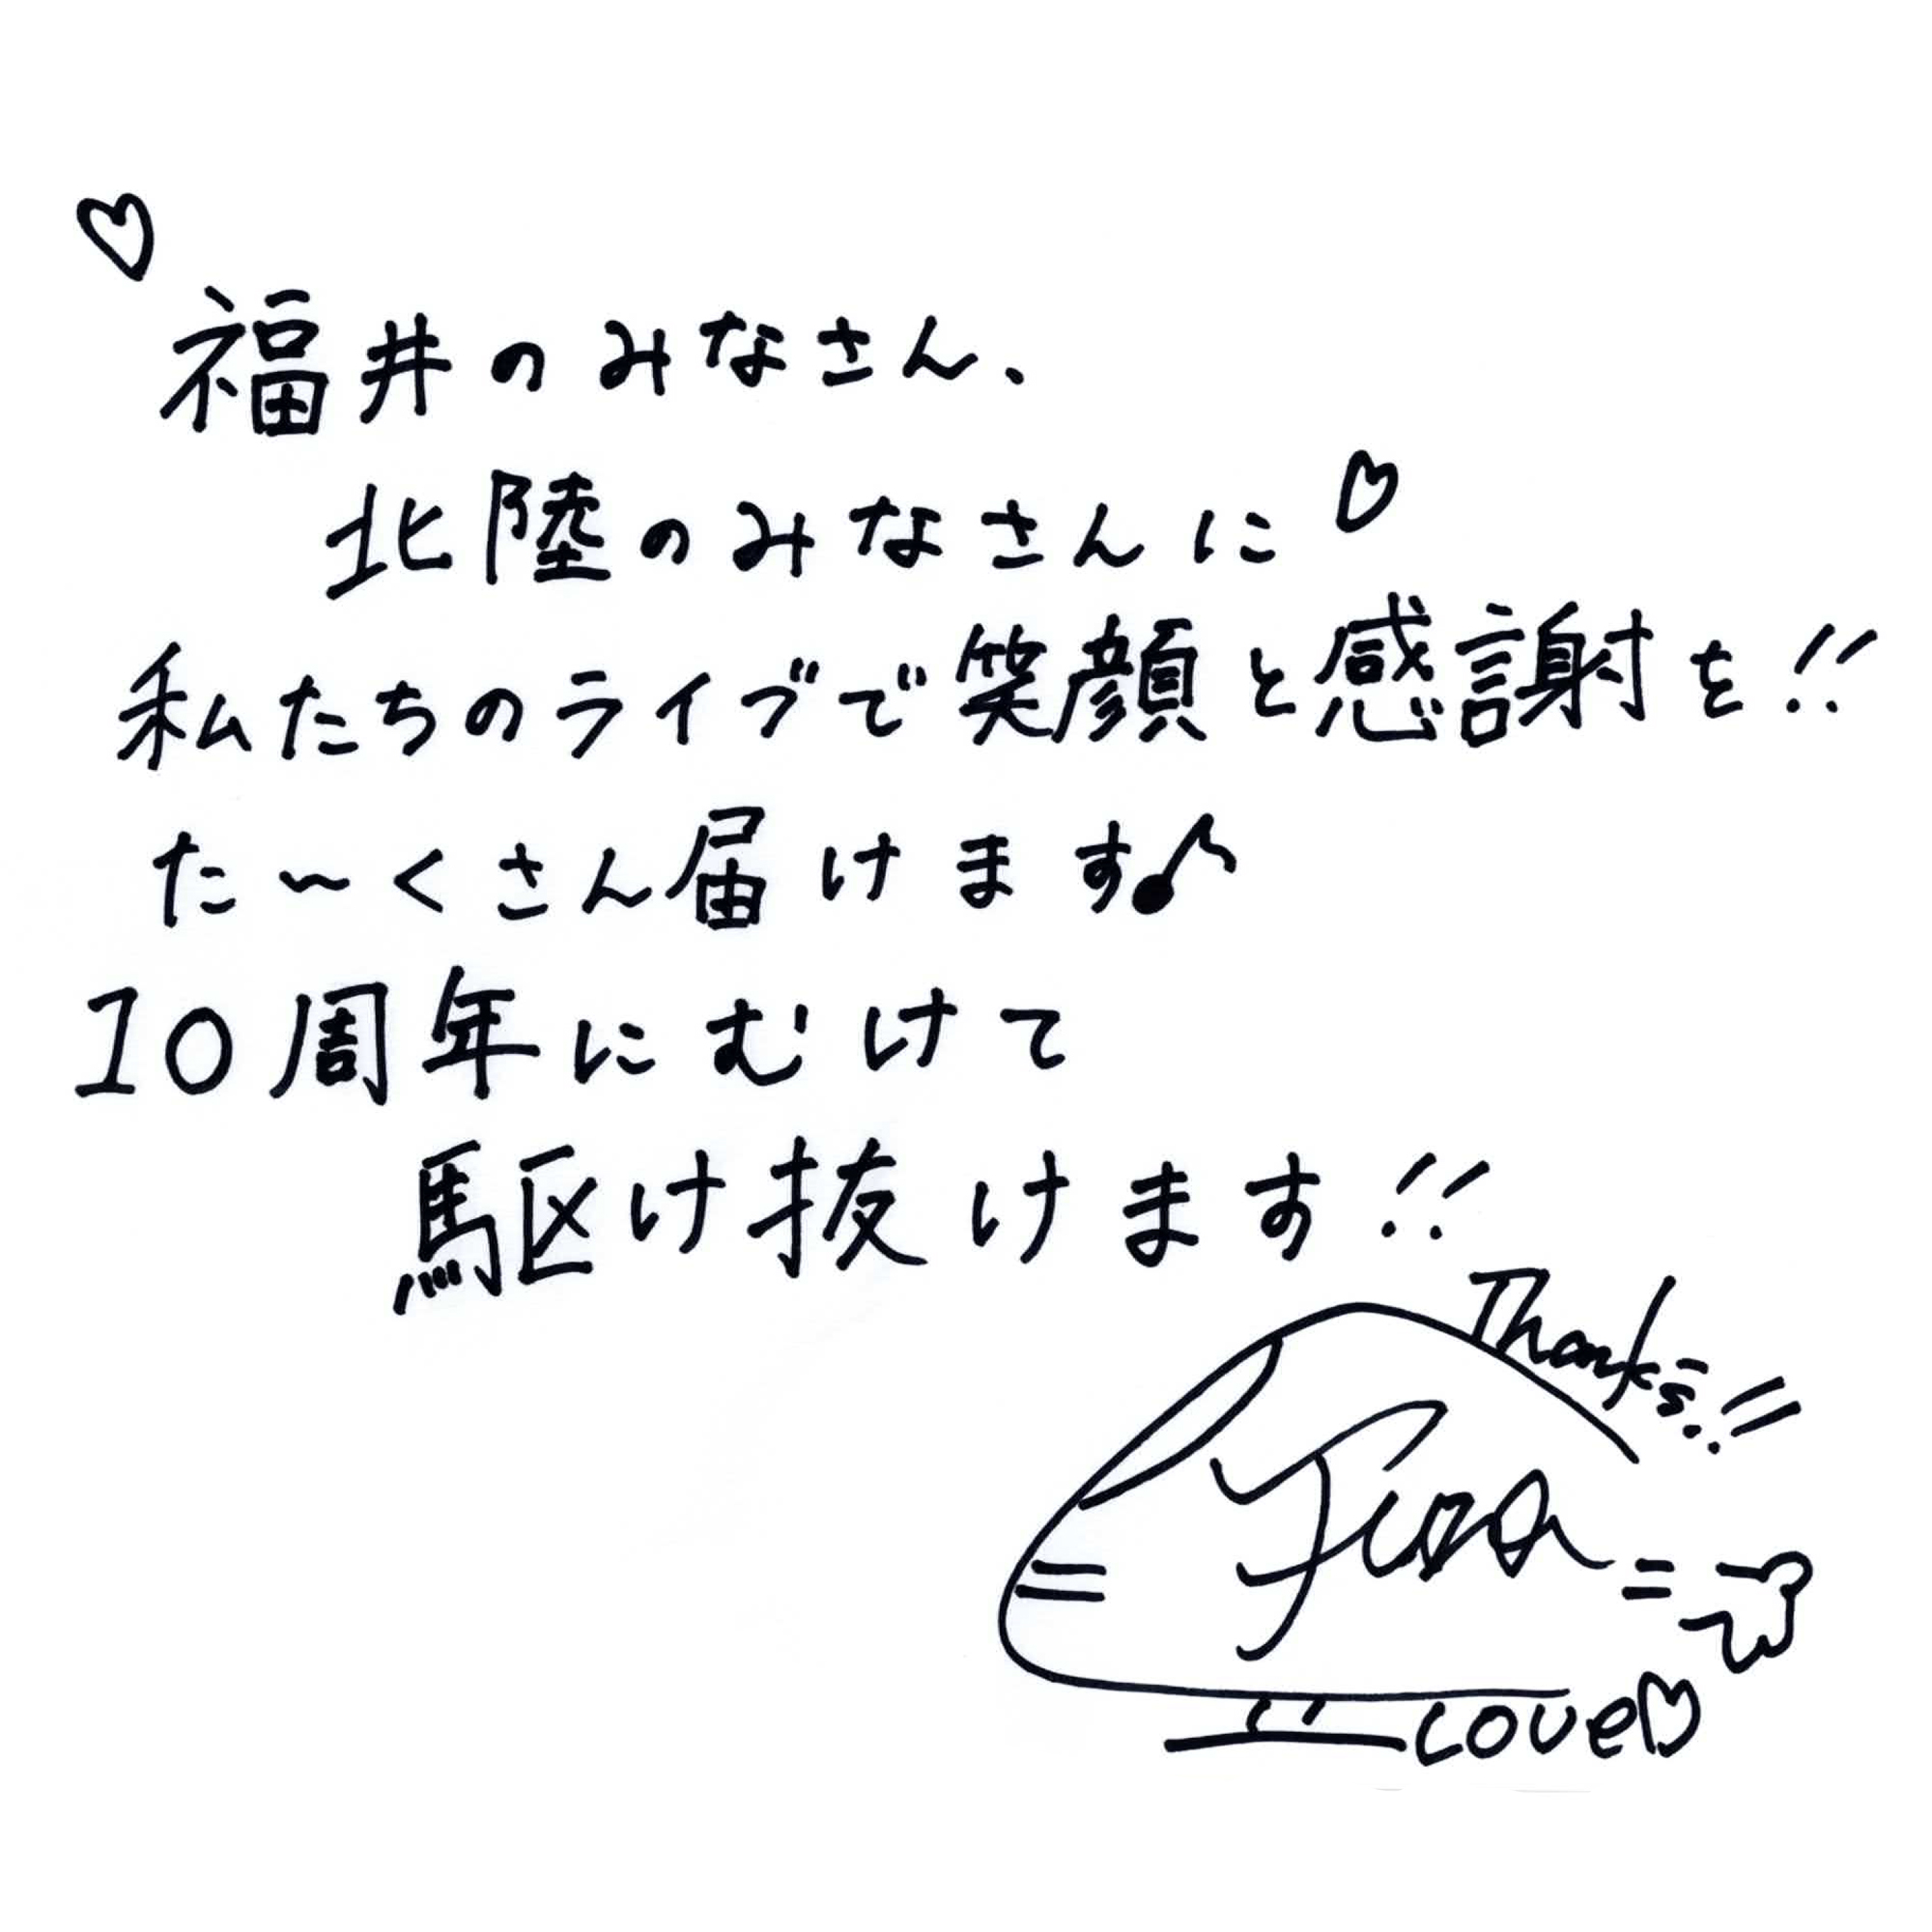 ♡
福井のみなさん、
北陸のみなさんに♡
私たちのライブで笑顔と感謝を!!
た〜くさん届けます♪
10周年にむけて
駆け抜けます!!
Thanks!!
LOVE♡